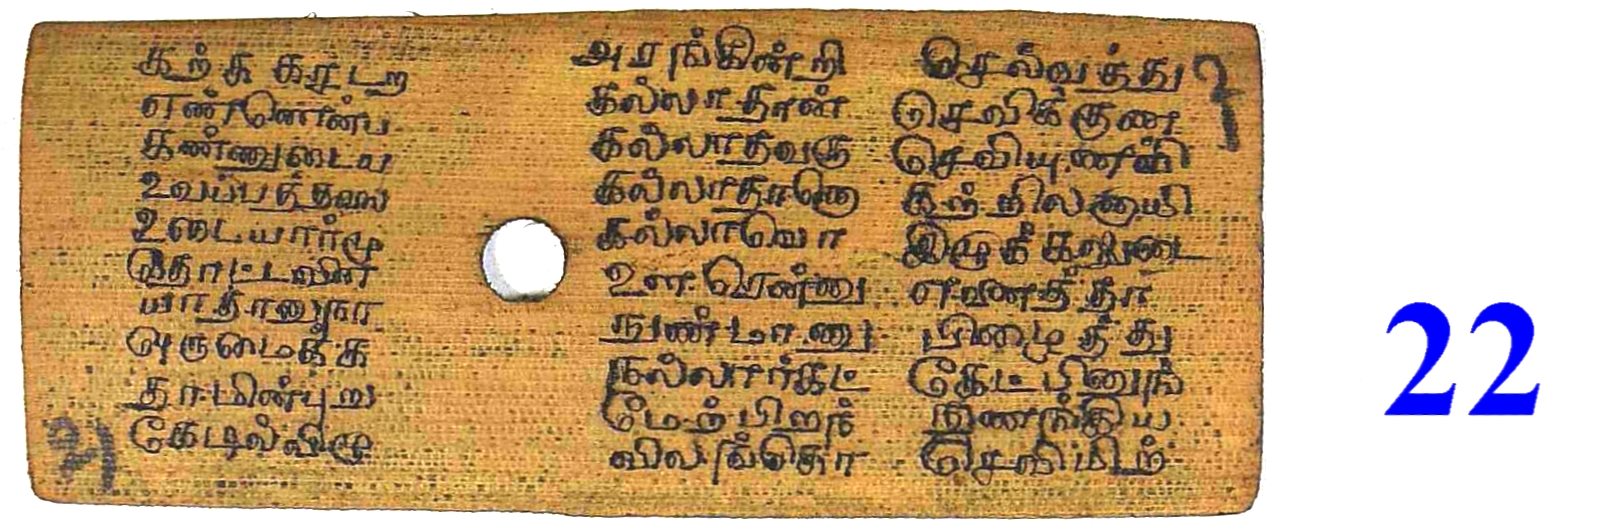 கற்க கசடற
எண்ணென்ப
கண்ணுடைய
உவப்பத்தலை
உடையார்மு
தொட்டனை
யாதானுநா
ஒருமைக்க
தாமின்புறு
கேடில்விழு
அரங்கின்றி
கல்லாதான்
கல்லாதவரு
கல்லாதானொ
கல்லாவொ
உளரென்னு
நுண்மாணு
நல்லார்கட்
மேற்பிறந்
விலங்கொ
செல்வத்து
செவிக்குண
செவியுணவி
கற்றிலனாயி
இழுக்கலுடை
எனைத்தா
பிழைத்து
கேட்பினுங்
நுணங்கிய
செவியிற்
22